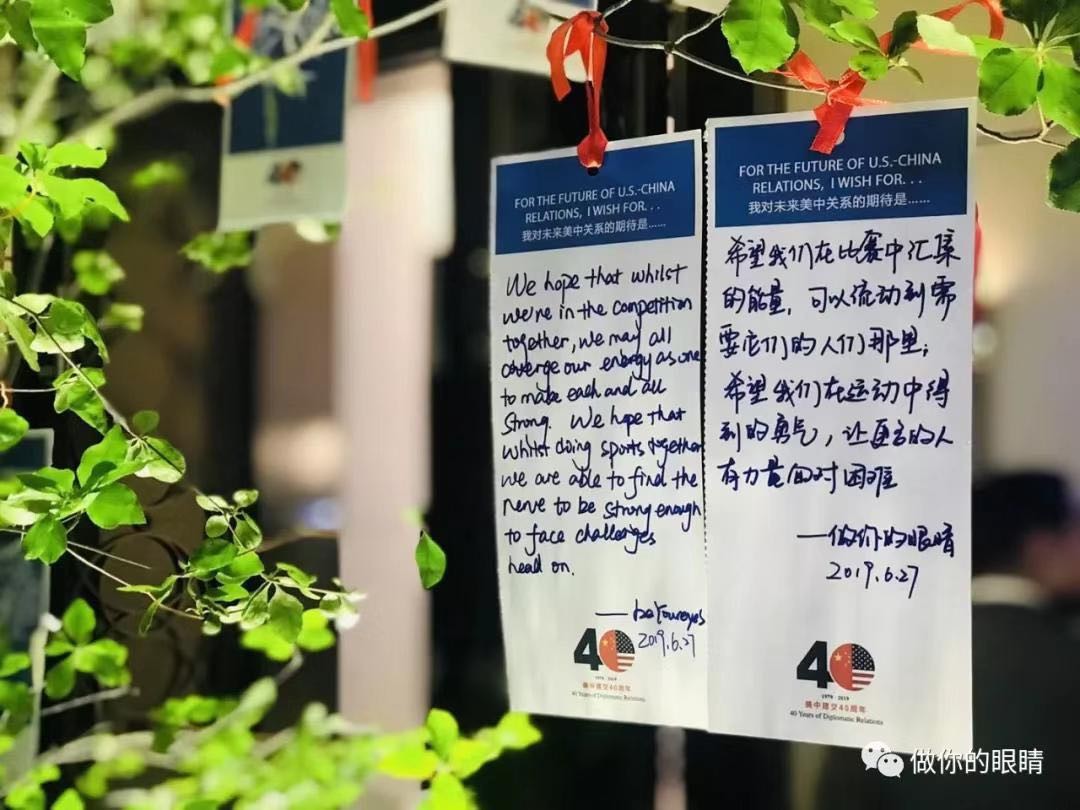 FOR THE FUTURE OF U.S.-CHINA
RELATIONS, I WISH FOR. . .
我对未来美中关系的期待是……
We hope that whilst
we're in the competition
together, we may all
coverge our energy as one
to make each and all
strong. We hope that
whilst doing sports together
we are able to find the
nerve to be strong enough
to face challenges
head on.
—beYoureyes
2019.6.27
40
1979-2019
美中建交40周年
40 Years of Diplomatic Relations
FOR THE FUTURE OF U.S.-CHINA
RELATIONS, I WISH FOR. . .
我对未来美中关系的期待是……
希望我们在比赛中汇集
的能量，可以流动到需
要它们的人们那里；
希望我们在运动中得
到的勇气，让更多的人
有力量面对困难
—做你的眼睛
2019.6.27
40
1979-2019
美中建交40周年
40 Years of Diplomatic Relations
做你的眼睛